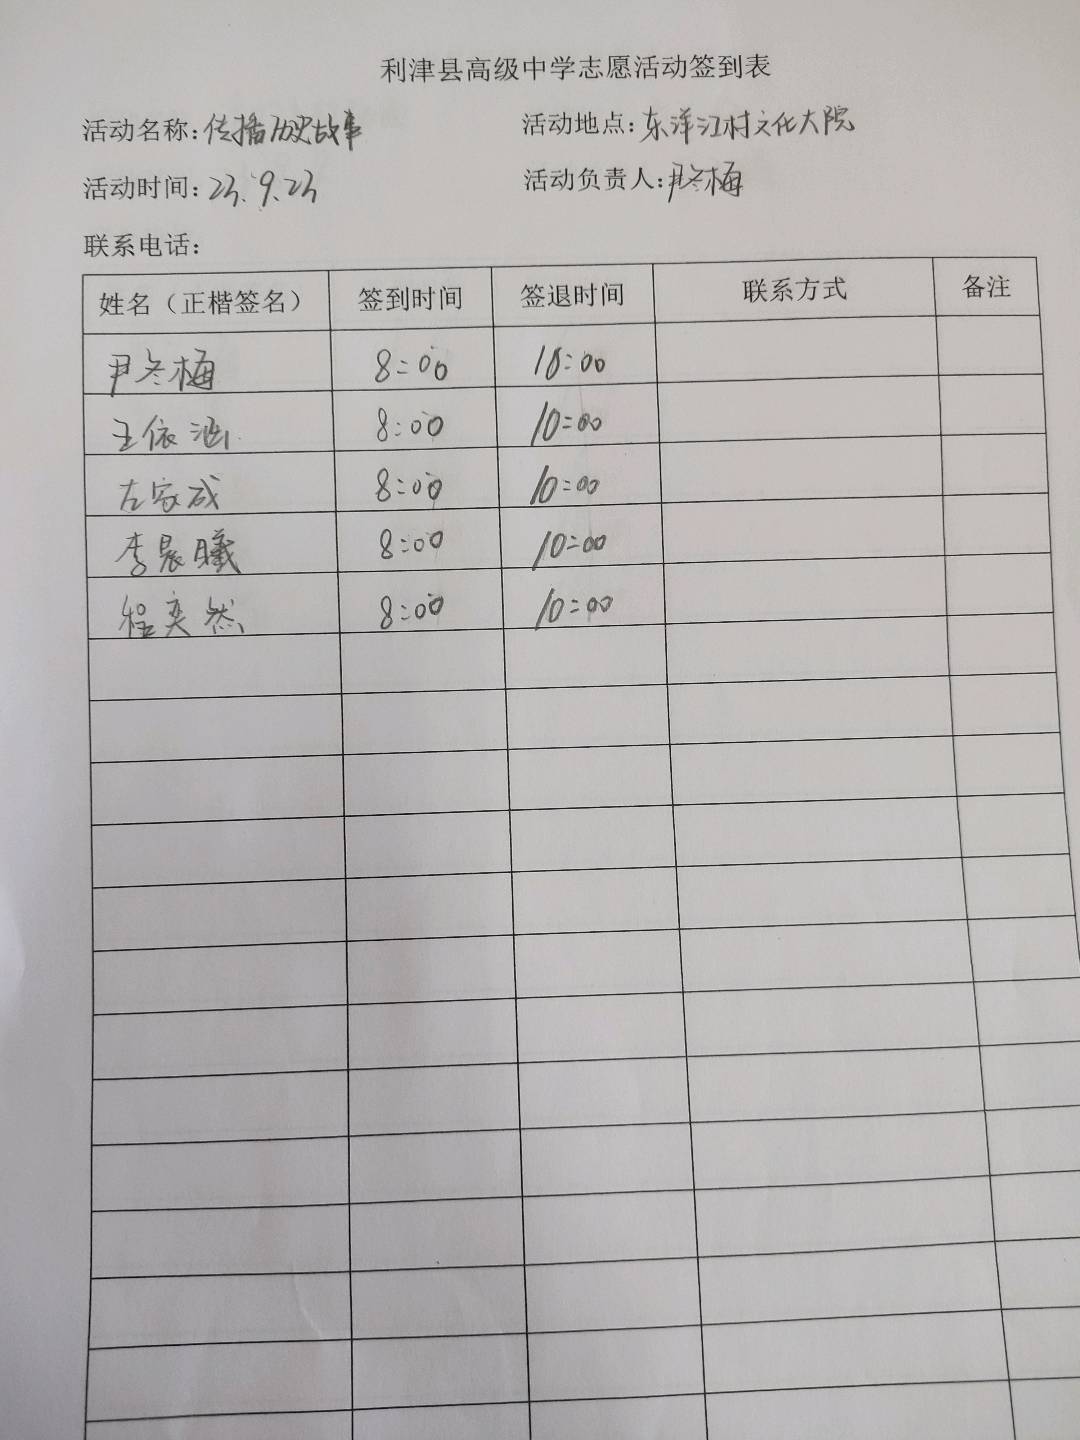 利津县高级中学志愿活动签到表
活动名称:传播历史故事 活动地点:东洋江村文化大院
活动时间:23.9.23 活动负责人:尹冬梅
联系电话:
姓名（正楷签名） 签到时间 签退时间 联系方式 备注
尹冬梅 8:00 10:00
王依涵 8:00 10:00
左家成 8:00 10:00
李晨曦 8:00 10:00
程奕然 8:00 10:00